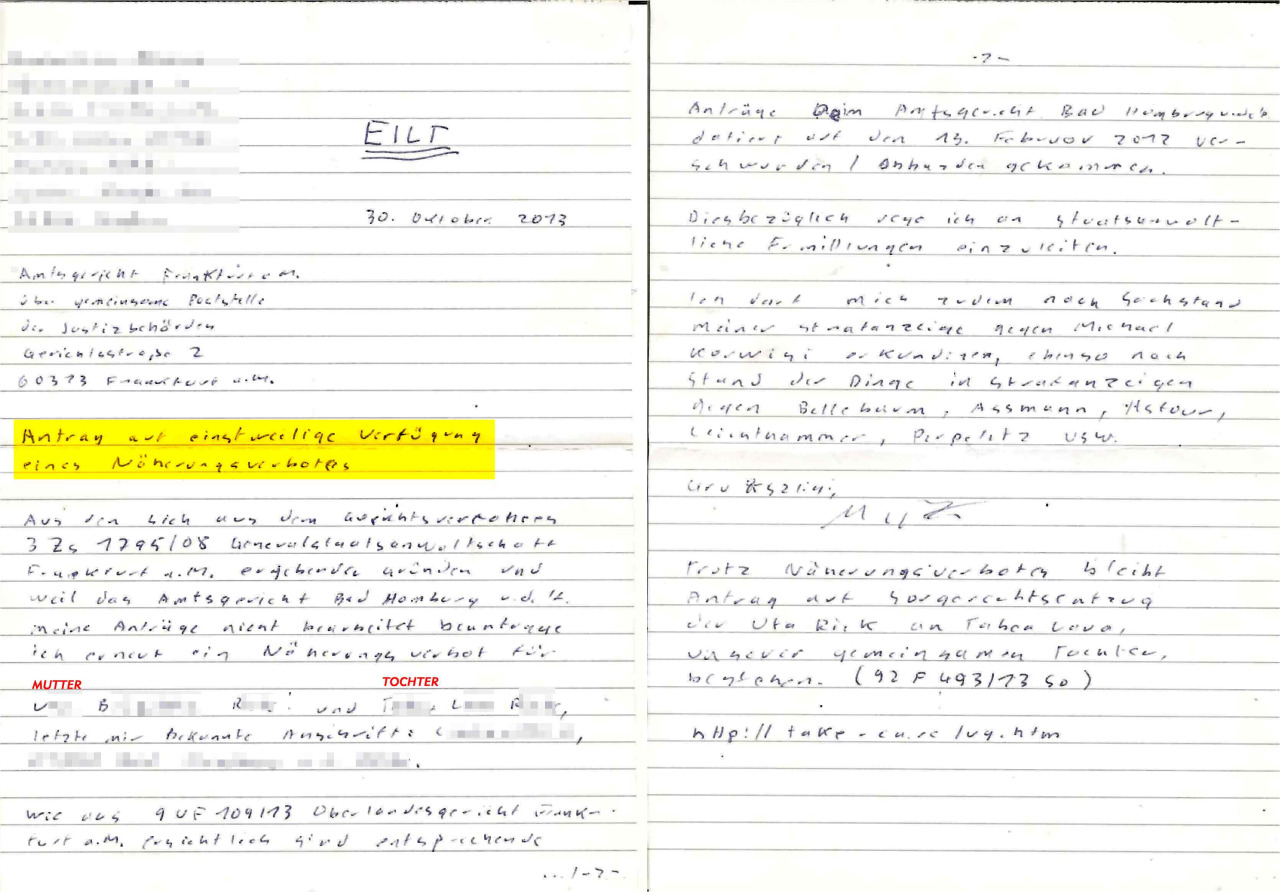 EILT
30. Oktober 2013
Amtsgericht Frankfurt a.M.
über gemeinsame Poststelle
der Justizbehörden
Gerichtsstraße 2
60313 Frankfurt a.M.
Antrag auf einstweilige Verfügung
eines Näherungsverbotes
Aus den sich aus dem Gerichtsverfahren
3 Zs 1795/08 Generalstaatsanwaltschaft
Frankfurt a.M. ergebenden Gründen und
weil das Amtsgericht Bad Homburg v.d.H.
meine Anträge nicht bearbeitet beantrage
ich erneut ein Näherungsverbot für
MUTTER TOCHTER
und
letzte mir bekannte Anschrift:
Wie aus 9 UF 109/13 Oberlandesgericht Frank-
furt a.M. ersichtlich sind entsprechende
...1-2-
-2-
Anträge beim Amtsgericht Bad Homburg v.d.H.
datiert auf den 13. Februar 2012 ver-
schwunden / abhanden gekommen.
Diesbezüglich rege ich an staatsanwalt-
liche Ermittlungen einzuleiten.
Ich darf mich zudem nach Sachstand
meiner Strafanzeige gegen Michael
Korwisi erkundigen, ebenso nach
Stand der Dinge in Strafanzeigen
gegen Bellebaum, Assmann, Hafour,
Leichthammer, Perpelitz usw.
Grußszlig;
Trotz Näherungsverbotes bleibt
Antrag auf Sorgerechtsentzug
der Uta Rick an Tabea Lara,
unserer gemeinsamen Tochter,
bestehen. (92 F 493/13 SO)